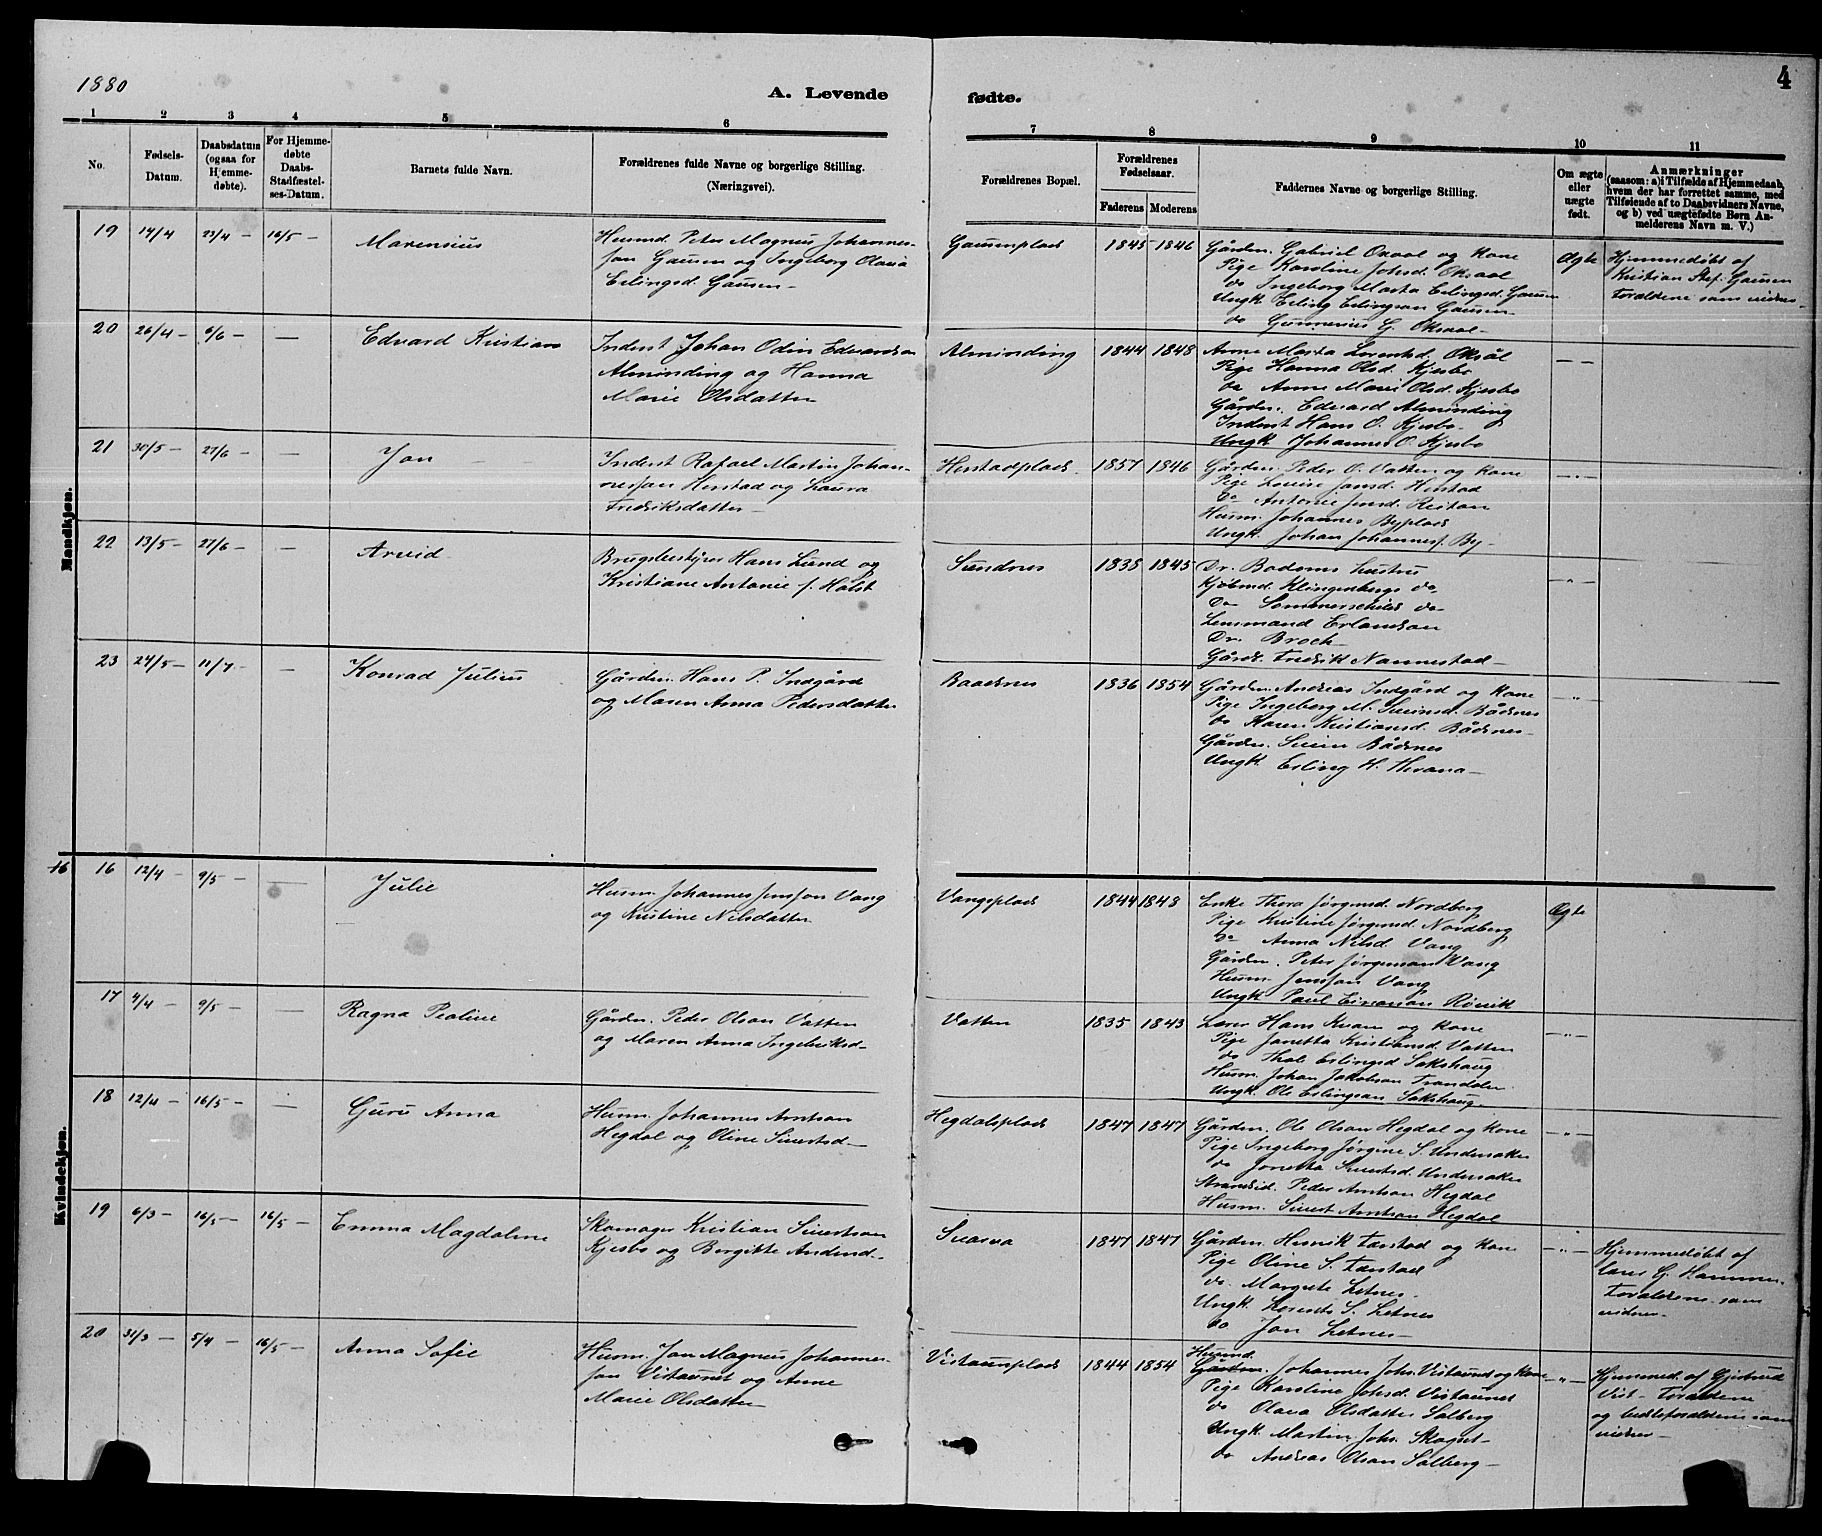 1880
A. Levende
fødte.
4
1 2 3 4 5 6 7 8 9 10 11
No.
Fødsels-Datum.
Daabsdatum (ogsaa for Hjemme-døbte).
For Hjemme-døbte Daabs-Stadfæstel-ses-Datum.
Barnets fulde Navn.
Forældrenes fulde Navne og borgerlige Stilling.
(Næringsvei).
Forældrenes Bopæl.
Forældrenes Fødselsaar.
Faderens Moderens
Faddernes Navne og borgerlige Stilling.
Om ægte eller uægte født.
Anmærkninger
(saasom: a) i Tilfælde af Hjemmedaab,
hvem der har forrettet samme, med
Tilføiende af to Daabsvidners Navne,
og b) ved uægtefødte Børn An-
melderens Navn m. V.)
Mandkjøn.
19 14/4 23/4 – 16/5 – Marensius
Husmd. Peter Magnus Johannes-
son Gausen og Ingeborg Olavia
Erlingsd. Gausen –
Gausenplads 1845 1846
Gårdm. Gabriel Oxaal og Kone
Pige Karoline Johsd. Oksaal
do Ingeborg Marta Erlingsd. Gausen
Ungk. Erling Erlingsan Gausen
do Gunnerius G. Oksaal –
Ægte
Hjemmedøbt af
Kristian Stef. Gausen
Forældrene som vidner
20 26/4 – 6/6 – — Edvard Kristian
Inderst Johan Odin Edvardsen
Alminding og Hanna
Marie Olsdatter
Alminding 1844 1848
Anne Marta Lorentsd. Oksål
Pige Hanna Olsd. Kjesbo
do Anne Marie Olsd. Kjesbo
Gårdm. Edvard Alminding
Inderst Hans O. Kjesbo
Ungk. Johannes O. Kjesbo
— —
21 30/5 – 27/6 — Jon
Inderst Rafael Martin Johan-
nesson Henstad og Laura
Fredriksdatter –
Henstadplads 1857 1846
Gårdm. Peder O. Vatten og Kone
Pige Louise Jansd. Henstad
Do Antonie Jensd. Reistan
Husm. Johannes Byplads
Ungk. Johan Johannesf. By –
— " —
22 13/5 – 27/6 – — Arvid
Brugsbestyrer Hans Lund og
Kristiane Antonie f. Holst
Sundnes 1838 1845
Dr. Bodoms Hustru
Kjøbmd. Klingenbergs do
Do Sommerschilds do
Lensmand Erlandsan
Dr. Broch
Gårdb. Fredrik Nannestad –
— " —
23 24/5 – 11/7 – — Konrad Julius
Gårdm. Hans P. Indgård
og Maren Anna Pedersdatter
Baadsnes 1836 1854
Gårdm. Andreas Indgård og Kone
Pige Ingeborg M. Sveinsd. Bådsnes
do Karen Kristiansd. Bådsnes –
Gårdm. Svein Bådsnes
Ungk. Erling H. Thrana –
— " —
Kvindekjøn.
16
16 12/4 – 9/5 – — Julie
Husm. Johannes Jensson Vang
og Kristine Nilsdatter
Vangsplads 1844 1848
Enke Thora Jørgensd. Nordberg
Pige Kristine Jørgensd. Nordberg
do Anna Nilsd. Vang
Gårdm. Peter Jørgensan Vang
Husm. Jensson Vang
Ungk. Paul Einarsan Røvik
Ægte
17 4/4 – 9/5 – — Ragna Peoline
Gårdm. Peder Olsan Vatten
og Maren Anna Ingebriksd –
Vatten 1835 1843
Lærer Hans Kvam og Kone
Pige Janetta Kristiansd. Vatten
do Thale Erlingsd Sakshaug
Husm. Johan Jakobsan Trandalen
Ungk. Ole Erlingsan Sakshaug
— " —
18 12/4 – 16/5 – — Guru Anna
Husm. Johannes Arntsan
Hegdal og Oline Sivertsd –
Hegdalsplads 1847 1847
Gårdm. Ole Olsan Hegdal og Kone
Pige Ingeborg Jørgine S. Undersaker
do Jonetta Sivertsd. Undersaker
Strandsid. Peder Arntsan Hegdal
Husm. Sivert Arntsan Hegdal
— " —
19 6/3 – 16/5 – 16/5 – Emma Magdalene
Skomager Kristian Sivertsen
Kjesbo og Bergitte Andersd. –
Svarva 1847 1847
Gårdm. Henrik Fanstad og Kone
Pige Oline S. Fanstad
do Margrete Letnes
Ungk. Lorents S. Letnes
do Jon Letnes –
— " —
Hjemmedøbt af
Lærer G. Hammer
Forældrene som
vidner –
20 31/3 – 5/4 – 16/5 – Anna Sofie
Husm. Jon Magnus Johannes-
son Vistaunet og Anne
Marie Olsdatter
Vistaunplads 1844 1854
Husmd.
Gårdm. Johannes Johs. Vistaunet og Kone
Pige Karoline Johsd. Vistaunet
do Olava Olsdatter Salberg
Ungk. Martin Johs. Skagset –
do Andreas Olsan Salberg –
— " —
Hjemmed. af Gjertrud
Vist – Forældrene
og bedsteforældrene som
vidner –